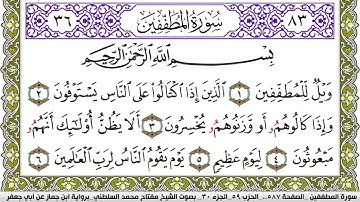 ٨٣ سُورَةُ المُطَفِّفِينَ ٣٦
بِسْمِ اللَّهِ الرَّحْمَٰنِ الرَّحِيمِ
وَيْلٌ لِّلْمُطَفِّفِينَ ١ ٱلَّذِينَ إِذَا ٱكْتَالُوا۟ عَلَى ٱلنَّاسِ يَسْتَوْفُونَ ٢
وَإِذَا كَالُوهُمُۥ أَو وَّزَنُوهُمُۥ يُخْسِرُونَ ٣ أَلَا يَظُنُّ أُو۟لَٰٓئِكَ أَنَّهُمُۥ
مَبْعُوثُونَ ٤ لِيَوْمٍ عَظِيمٍ ٥ يَوْمَ يَقُومُ ٱلنَّاسُ لِرَبِّ ٱلْعَٰلَمِينَ ٦
سورة المطففين . الصفحة ٥٨٧ .. الحزب ٥٩ الجزء ٣٠ . بصوت الشيخ مفتاح محمد السلطني . برواية ابن جماز عن أبي جعفر